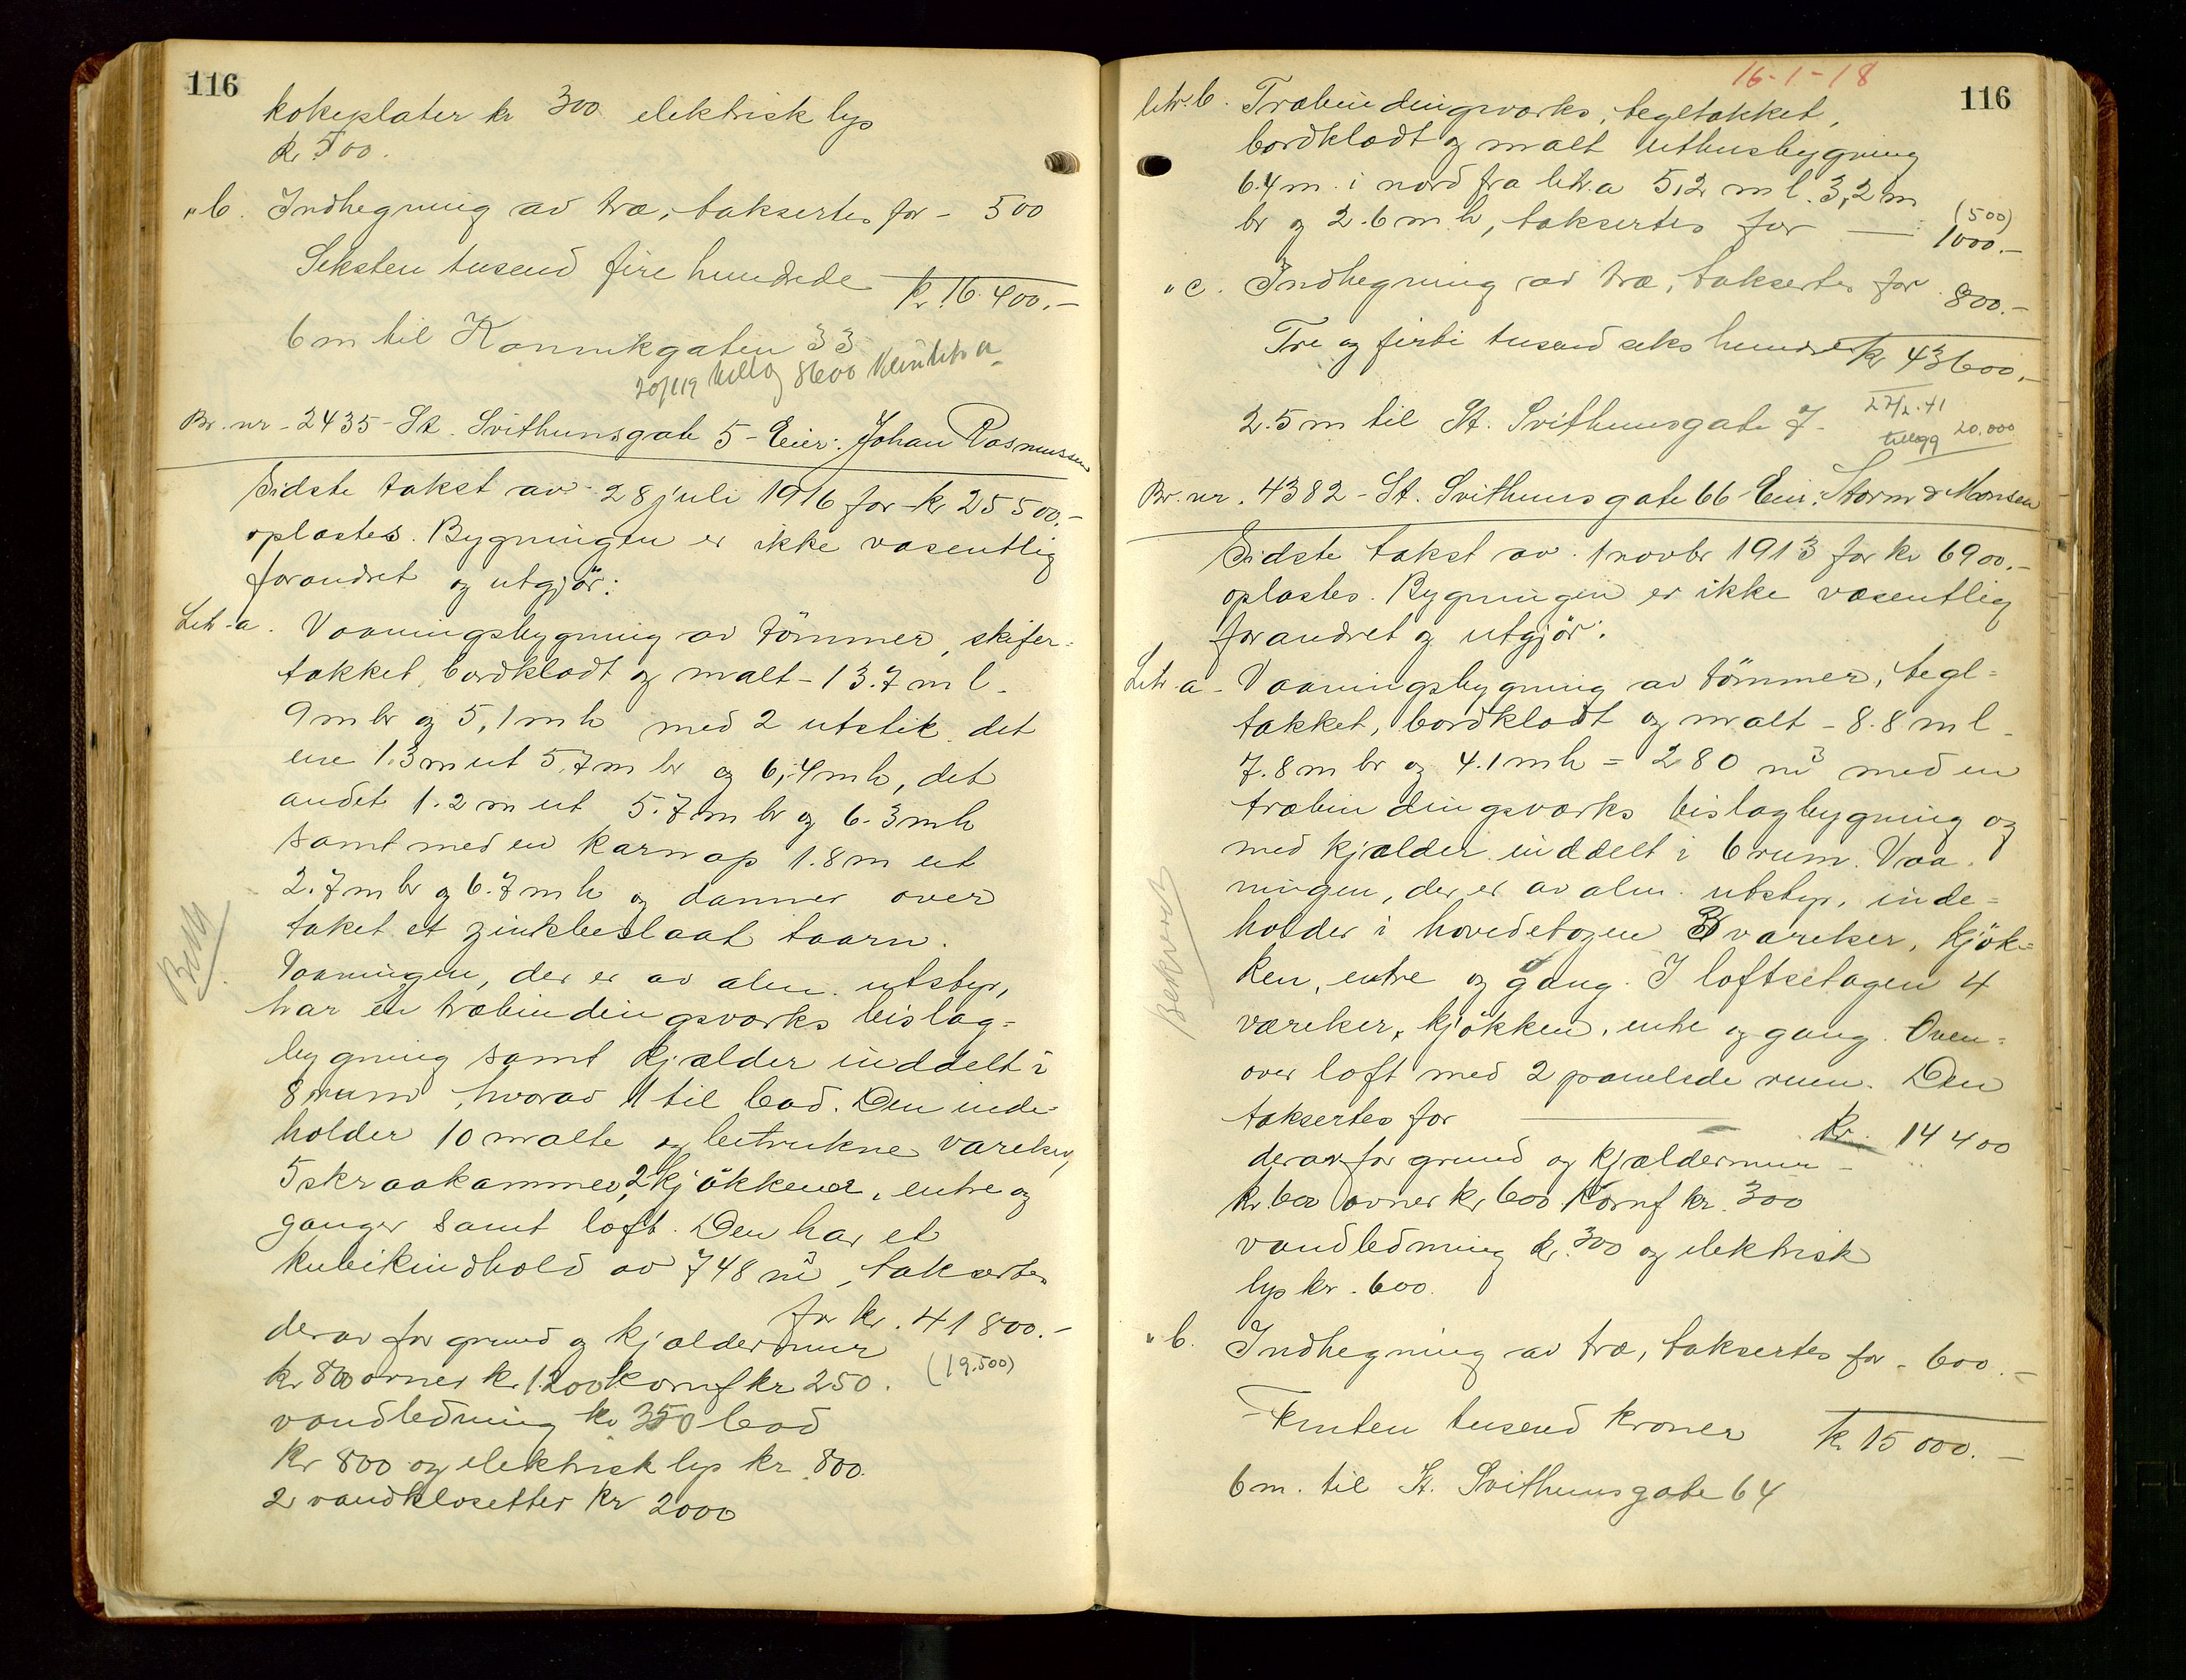 116
kokeplater kr 300 elektrisk lys
kr 500.
" b. Indhegning av træ, taksertes for - 500
Seksten tusend fire hundrede kr. 16.400.-
6 m til Kannikgaten 33
20/119 tillæg 8600
Br. nr - 2435 - St. Svithunsgate 5 - Eier: Johan Rasmussen
Sidste takst av 28 juli 1916 for kr 25500.-
oplæstes. Bygningen er ikke væsentlig
forandret og utgjør:
Litr. a. Vaaningsbygning av tömmer, skifer-
takket, bordklædt og malt - 13.7 m l.
9 m br og 5,1 m h med 2 utstik, det
ene 1.3 m ut 5.7 m br og 6,4 m h, det
andet 1.2 m ut 5.7 m br og 6.3 m h
samt med en karnap 1.8 m ut
2.7 m br og 6.7 m h og danner over
taket et zinkbeslaat taarn.
Vaaningen, der er av alm. utstyr,
har en træbindingsværks bislag-
bygning samt kjælder inddelt i
8 rum, hvorav 1 til bad. Den inde-
holder 10 malte og betrukne værelser,
5 skraakammer, 2 kjökkener, entre og
ganger samt loft. Den har et
kubikindhold av 748 m³, taksertes
for kr. 41 800.-
derav for grund og kjældermur
(19.500)
kr 800 ovner kr. 1200 komf kr 250.
vandledning kr 350 bad
kr 800 og elektrisk lys kr 800.
2 vandklosetter kr 2000
16-1-18
116
litr. b. Træbindingsværks, tegltakket,
bordklædt og malt uthusbygning
6.4 m i nord fra litr. a 5,2 m l. 3,2 m
br og 2.6 m h, taksertes for — (500)
1000.-
" c. Indhegning av træ, taksertes for 800.-
Tre og firti tusend seks hundrede kr 43600.-
2.5 m til St. Svithunsgate 7.
27/2.41
tillegg 20.000
Br. nr. 4382 - St. Svithunsgate 66 Eier: Storm & Monsen
Sidste takst av 1 novbr 1913 for kr 6900.-
oplæstes. Bygningen er ikke væsentlig
forandret og utgjör:
Litr. a - Vaaningsbygning av tömmer, tegl-
takket, bordklædt og malt - 8.8 m l.
7.8 m br og 4.1 m h = 280 m³ med en
træbindingsværks bislagbygning og
med kjælder inddelt i 6 rum. Vaa-
ningen, der er av alm. utstyr, inde-
holder i hovedetagen 3 værelser, kjök-
ken, entre og gang. I loftsetagen 4
værelser, kjökken, entre og gang. Oven-
over loft med 2 panelede rum. Den
taksertes for — kr. 14 400
derav for grund og kjældermur -
kr. 600 ovner kr 600 komf kr. 300
vandledning kr. 300 og elektrisk
lys kr. 600.
" b. Indhegning av træ, taksertes for - 600.-
Femten tusend kroner kr 15 000.-
6 m. til St. Svithunsgate 64